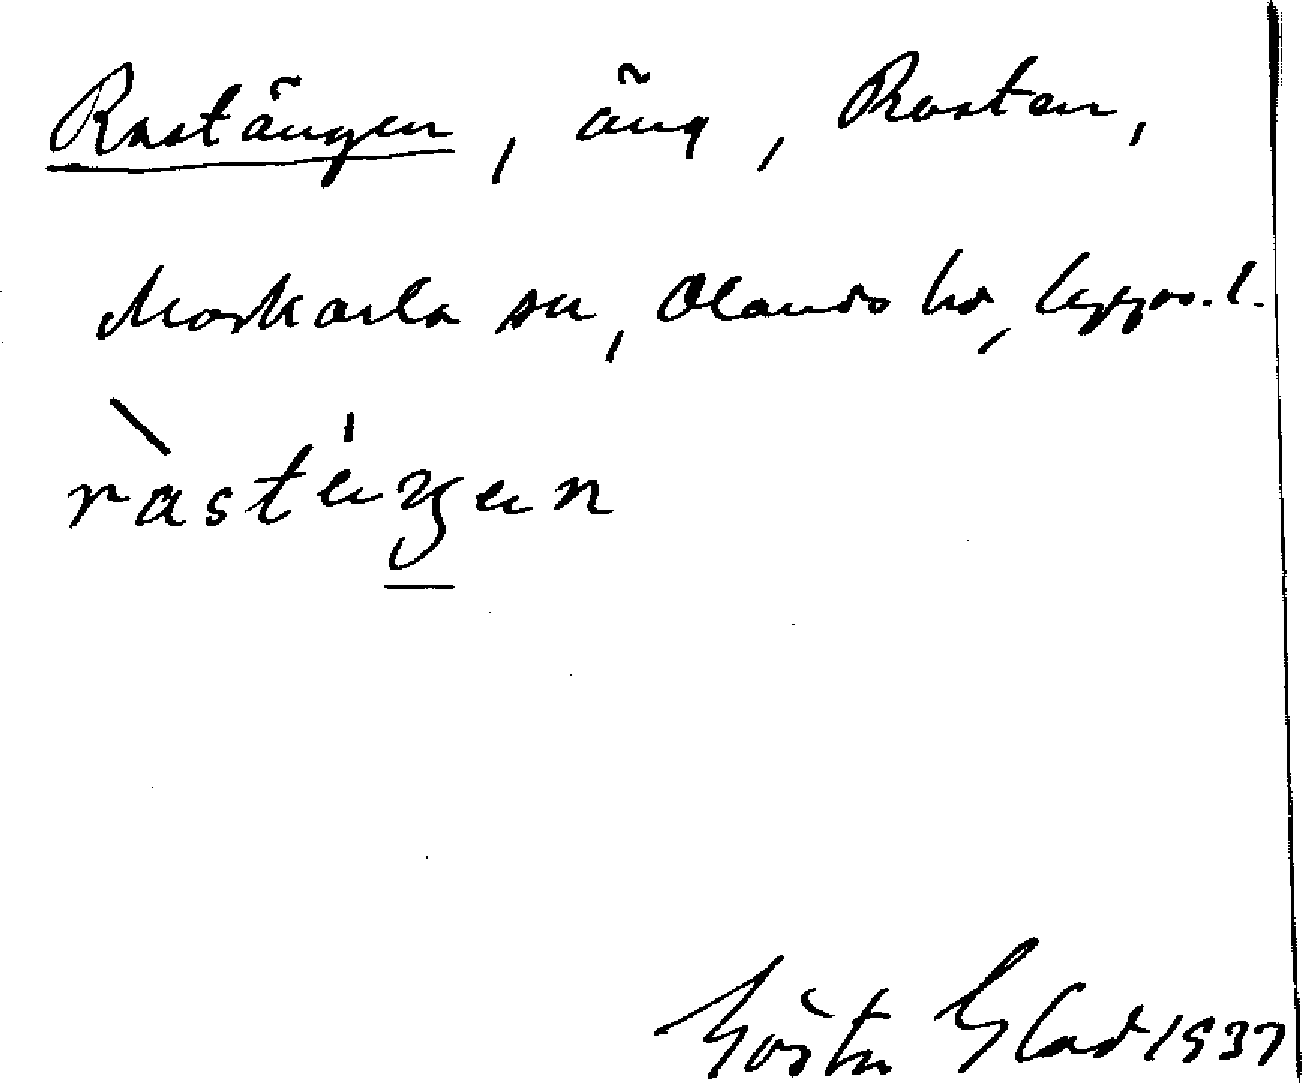 Rastängen, äng, Rasten,
Morkarla sn, Olands hd, Uppsa. l.
ràstéŋen
Gösta Glad 1937